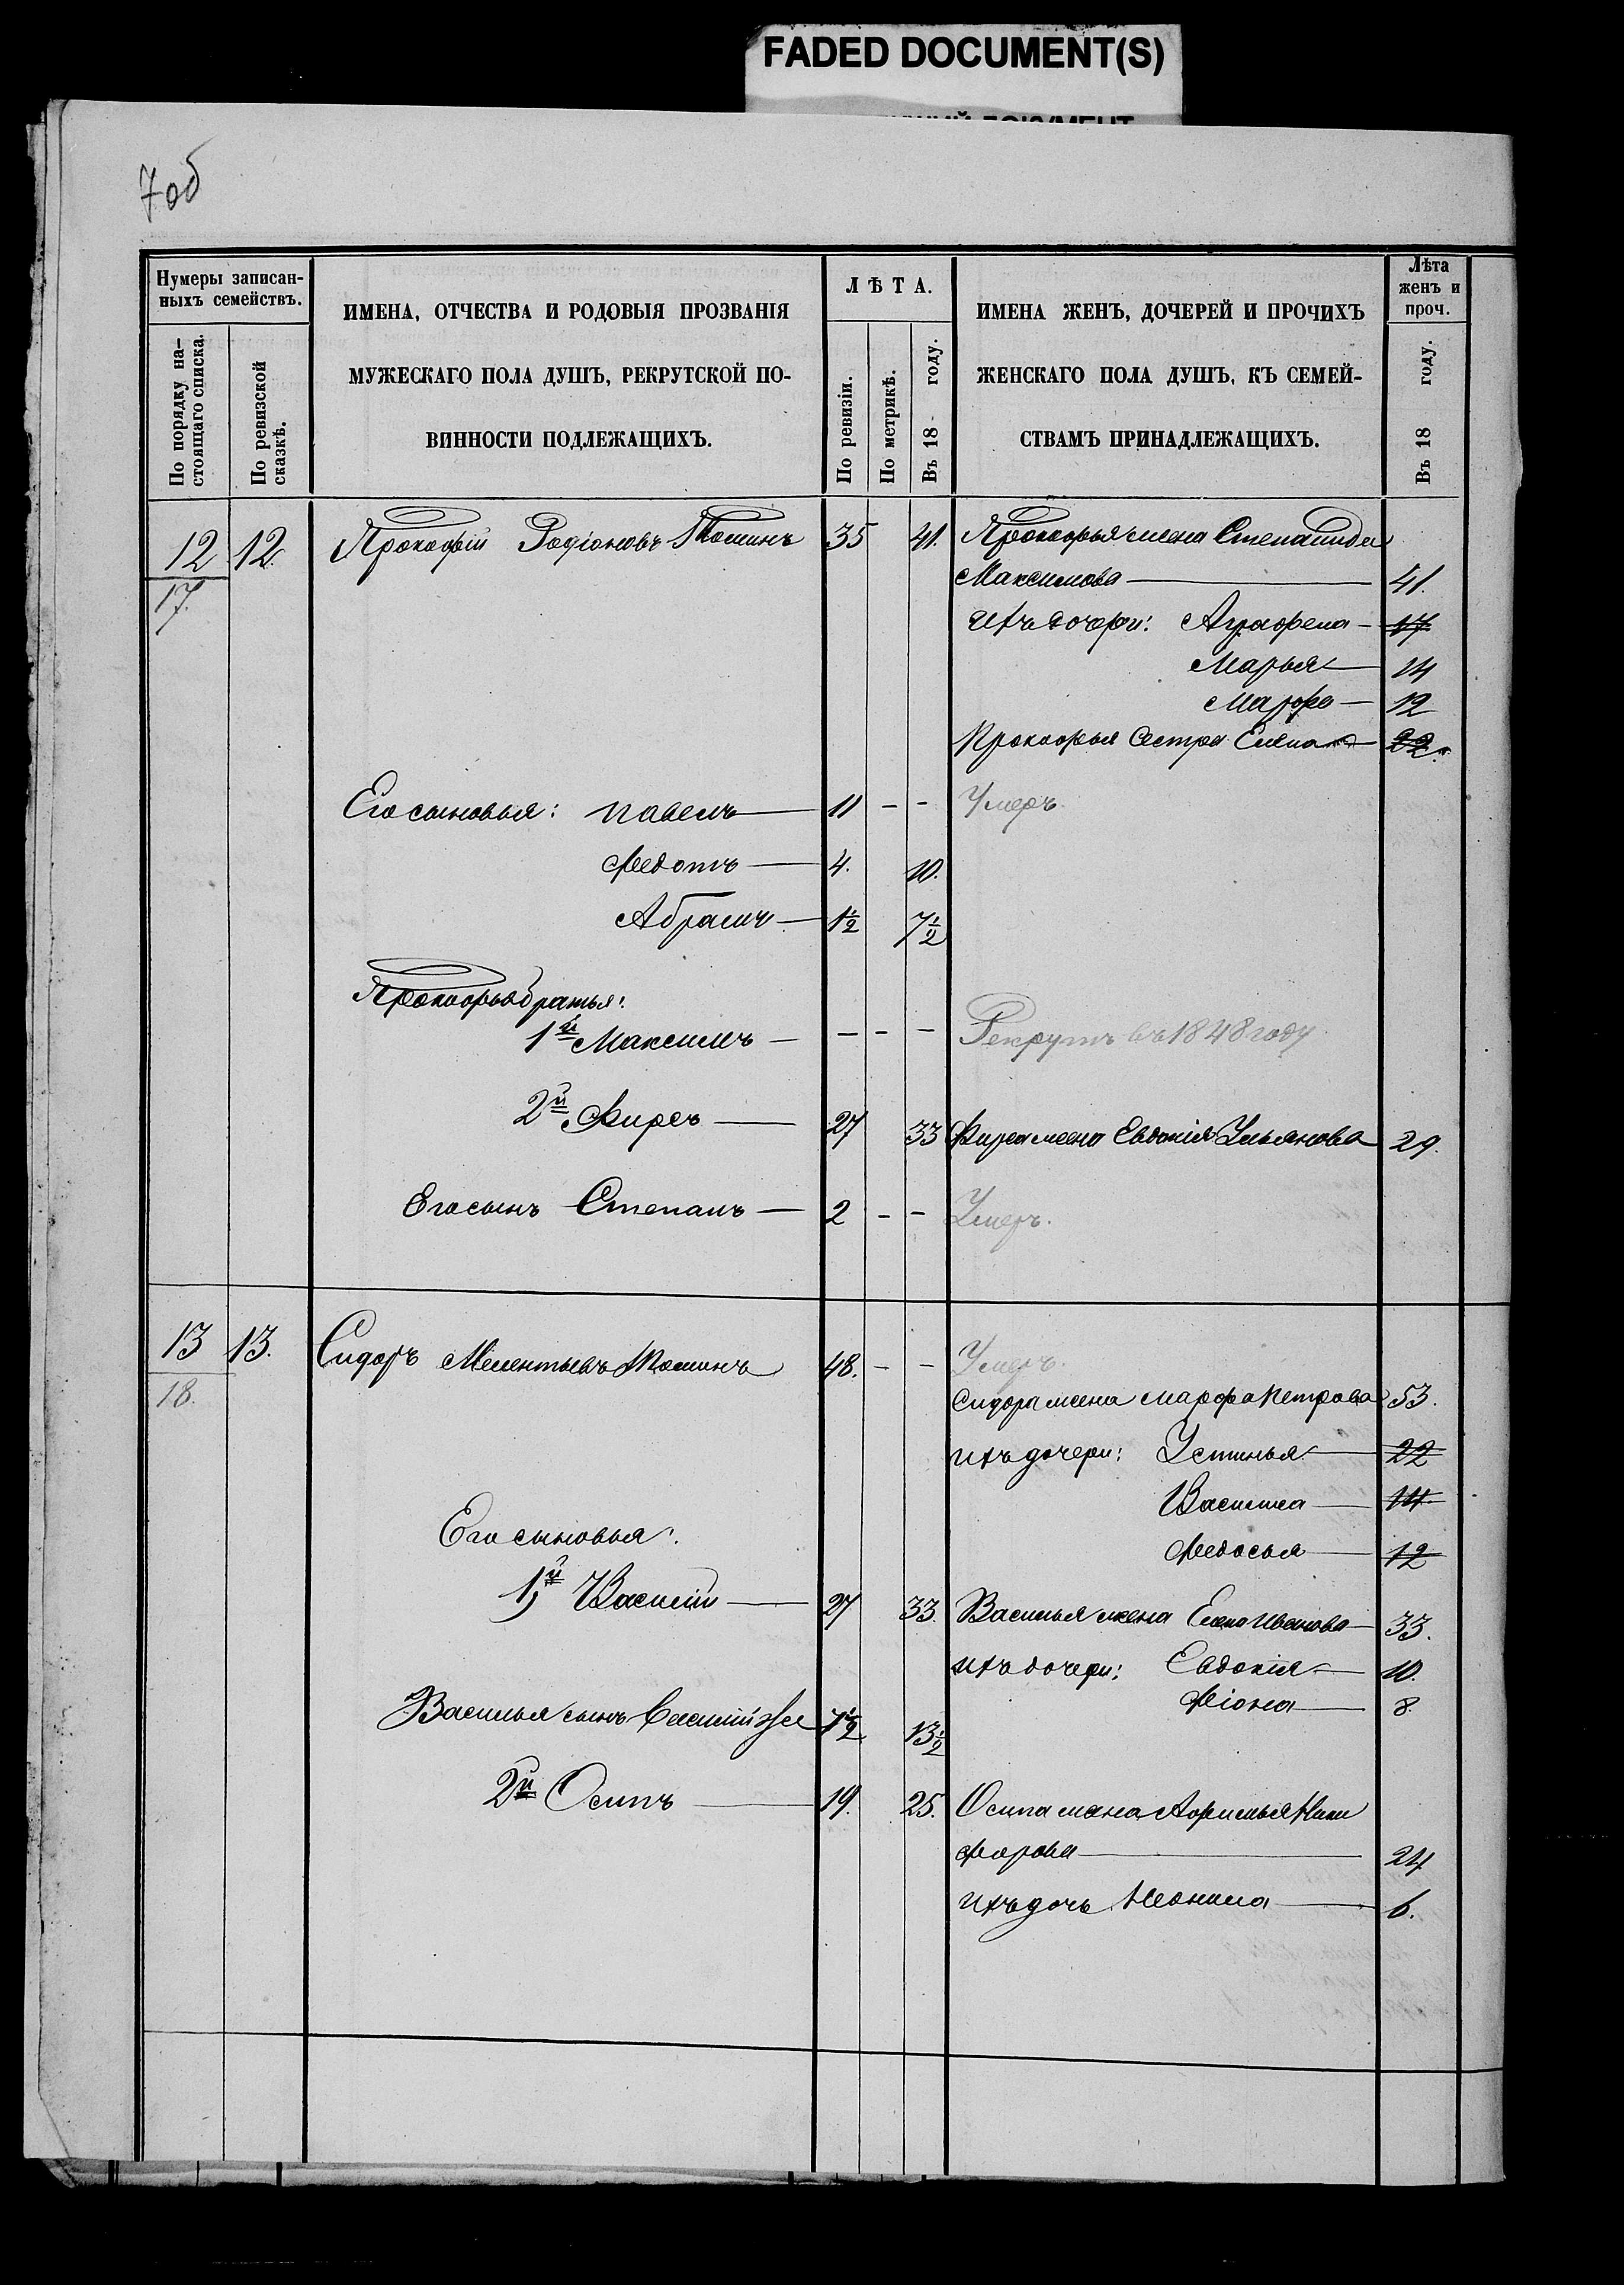 FADED DOCUMENT(S)
7об
Нумеры записан-
ныхъ семействъ.
По порядку на-
стоящаго списка.
По ревизской
сказкѣ.
ИМЕНА, ОТЧЕСТВА И РОДОВЫЯ ПРОЗВАНІЯ
МУЖЕСКАГО ПОЛА ДУШЪ, РЕКРУТСКОЙ ПО-
ВИННОСТИ ПОДЛЕЖАЩИХЪ.
ЛѢТА.
По ревизіи.
По метрикѣ.
Въ 18 году.
ИМЕНА ЖЕНЪ, ДОЧЕРЕЙ И ПРОЧИХЪ
ЖЕНСКАГО ПОЛА ДУШЪ, КЪ СЕМЕЙ-
СТВАМЪ ПРИНАДЛЕЖАЩИХЪ.
Лѣта
женъ и
проч.
Въ 18 году.
12 12. Прокофій Родіоновъ 35 41. Прокофья жена Степанида
17. Максимова 41.
Ихъ дочери: Аграфена 17
Марья 14
Марфа 12
Прокофья Сестра Елена 22.
Его сыновья: Павелъ 11 - - Умеръ
Федотъ 4. 10.
Абрамъ 1½ 7½
Прокофья братья:
1й Максимъ - - - Рекрутъ въ 1848 году
2й Фирсъ 27 33 Фирса жена Евдокія Ульянова 29.
Его сынъ Степанъ 2 - - Умеръ.
13 13. Сидоръ Мелентьевъ 48. - - Умеръ.
18. Сидора жена Марфа Петрова 53.
Ихъ дочери: Устинья 22
Василиса 14
Федосья 12
Его сыновья:
1й Василій 27 33. Василья жена Елена Иванова 33.
Ихъ дочери: Евдокія 10.
Фіона 8.
Василья сынъ Василій же 7½ 13½
2й Осипъ 19. 25. Осипа жена Афимья Ники
форова 24
Ихъ дочь Неонила 6.